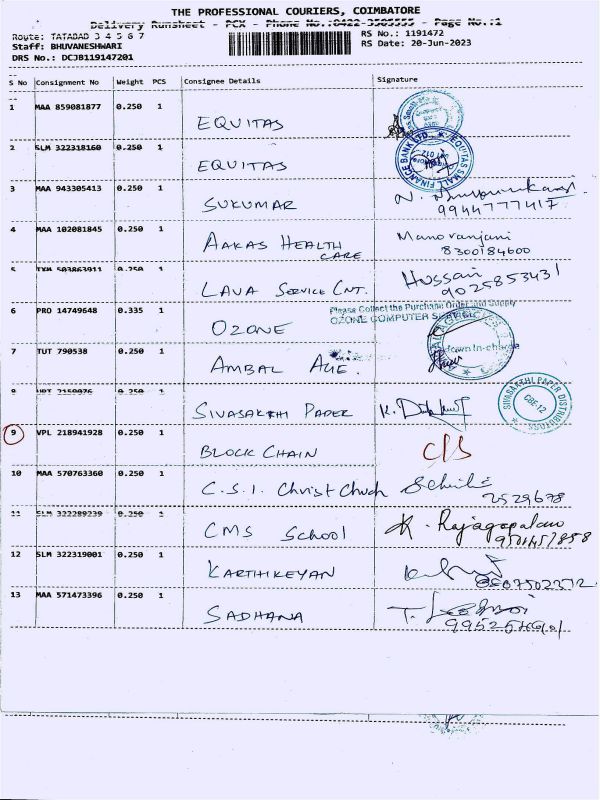 THE PROFESSIONAL COURIERS, COIMBATORE
Delivery Runsheet - PCX - Phone No.:0422-3505555 - Page No.:1
Route: TATABAD 3 4 5 6 7
RS No.: 1191472
Staff: BHUVANESHWARI
RS Date: 20-Jun-2023
DRS No.: DCJB119147201
S No Consignment No Weight PCS Consignee Details Signature
1 MAA 859081877 0.250 1
EQUITAS
2 SLM 322318160 0.250 1
EQUITAS
EQUITAS SMALL FINANCE BANK LTD.
3 MAA 943305413 0.250 1
SUKUMAR
9944777417
4 MAA 102081845 0.250 1
AAKAS HEALTH CARE
Manoranjani
8300184600
5 TXM 503863911 0.250 1
LAVA SERVICE CNT.
Hussain
9025853431
Please Collect the Purchase Order and Supply
OZONE COMPUTER SERVICE
6 PRO 14749648 0.335 1
OZONE
7 TUT 790538 0.250 1
AMBAL
8 0.250 1
SIVASAKTHI PAPER
SIVASAKTHI PAPER DISTRIBUTORS
CBE-12
9 VPL 218941928 0.250 1
BLOCK CHAIN
C/S
10 MAA 570763360 0.250 1
C.S.I. Christ Chuch
2529678
11 SLM 322289239 0.250 1
CMS School
K. Rajagopalan
12 SLM 322319001 0.250 1
KARTHIKEYAN
13 MAA 571473396 0.250 1
SADHANA